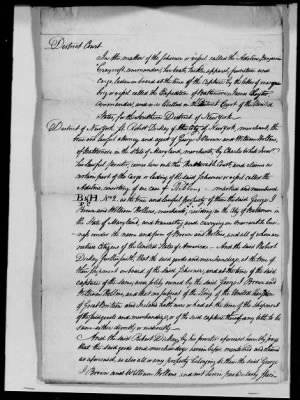 District Court
In the matter of the Schooner or vessel called the Adeline, Benjamin
Craycroft, commander, her boats, tackle, apparel, furniture and
cargo, laden on board at the time of the capture by the letter of marque
brig or vessel called the Expedition of Baltimore, James
Commander, and now libelled in the District Court of the United
States for the Southern District of New York.
District of New York ss. Robert Dickey of the City of New York, merchant, the
true and lawful attorney and agent of George I Brown and William Hollins
of Baltimore in the State of Maryland, merchants, by Charles
his lawful proctor, comes here into this Honorable Court and claims a
certain part of the Cargo or lading of the said Schooner or vessel called the
Adeline, consisting of one case of marked and numbered
B&H No 2. as the true and lawful property of them the said George I
Brown and William Hollins, merchants, residing in the City of Baltimore in
the State of Maryland, and transacting and carrying on mercantile busi-
ness under the name and firm of Brown and Hollins, and all of whom are
native citizens of the United States of America. And the said Robert
Dickey further saith, that the said goods and merchandize, at the time of
their shipment on board of the said Schooner, and at the time of the said
capture of the same, were solely owned by the said George I Brown and
William Hollins, and that no subject of the King of the United Kingdom
of Great Britain and Ireland hath now or had at the time of the shipment
of the said goods and merchandize, or of the said capture thereof any title to the
same either directly or indirectly.
And the said Robert Dickey, by his proctor aforesaid humbly prays
that the said goods and merchandize herein before mentioned and claimed
as aforesaid, as also all or any property belonging to them the said George
I Brown and William Hollins and not herein particularly